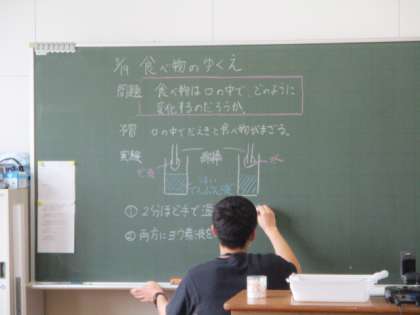 5/19 食べ物のゆくえ
問題 食べ物は口の中で、どのように
変化するのだろうか。
予習 口の中でだえきと食べ物がまざる。
実験 綿棒
だ液 水
でんぷん液
① 2分ほど手で温
② 両方にヨウ素液を